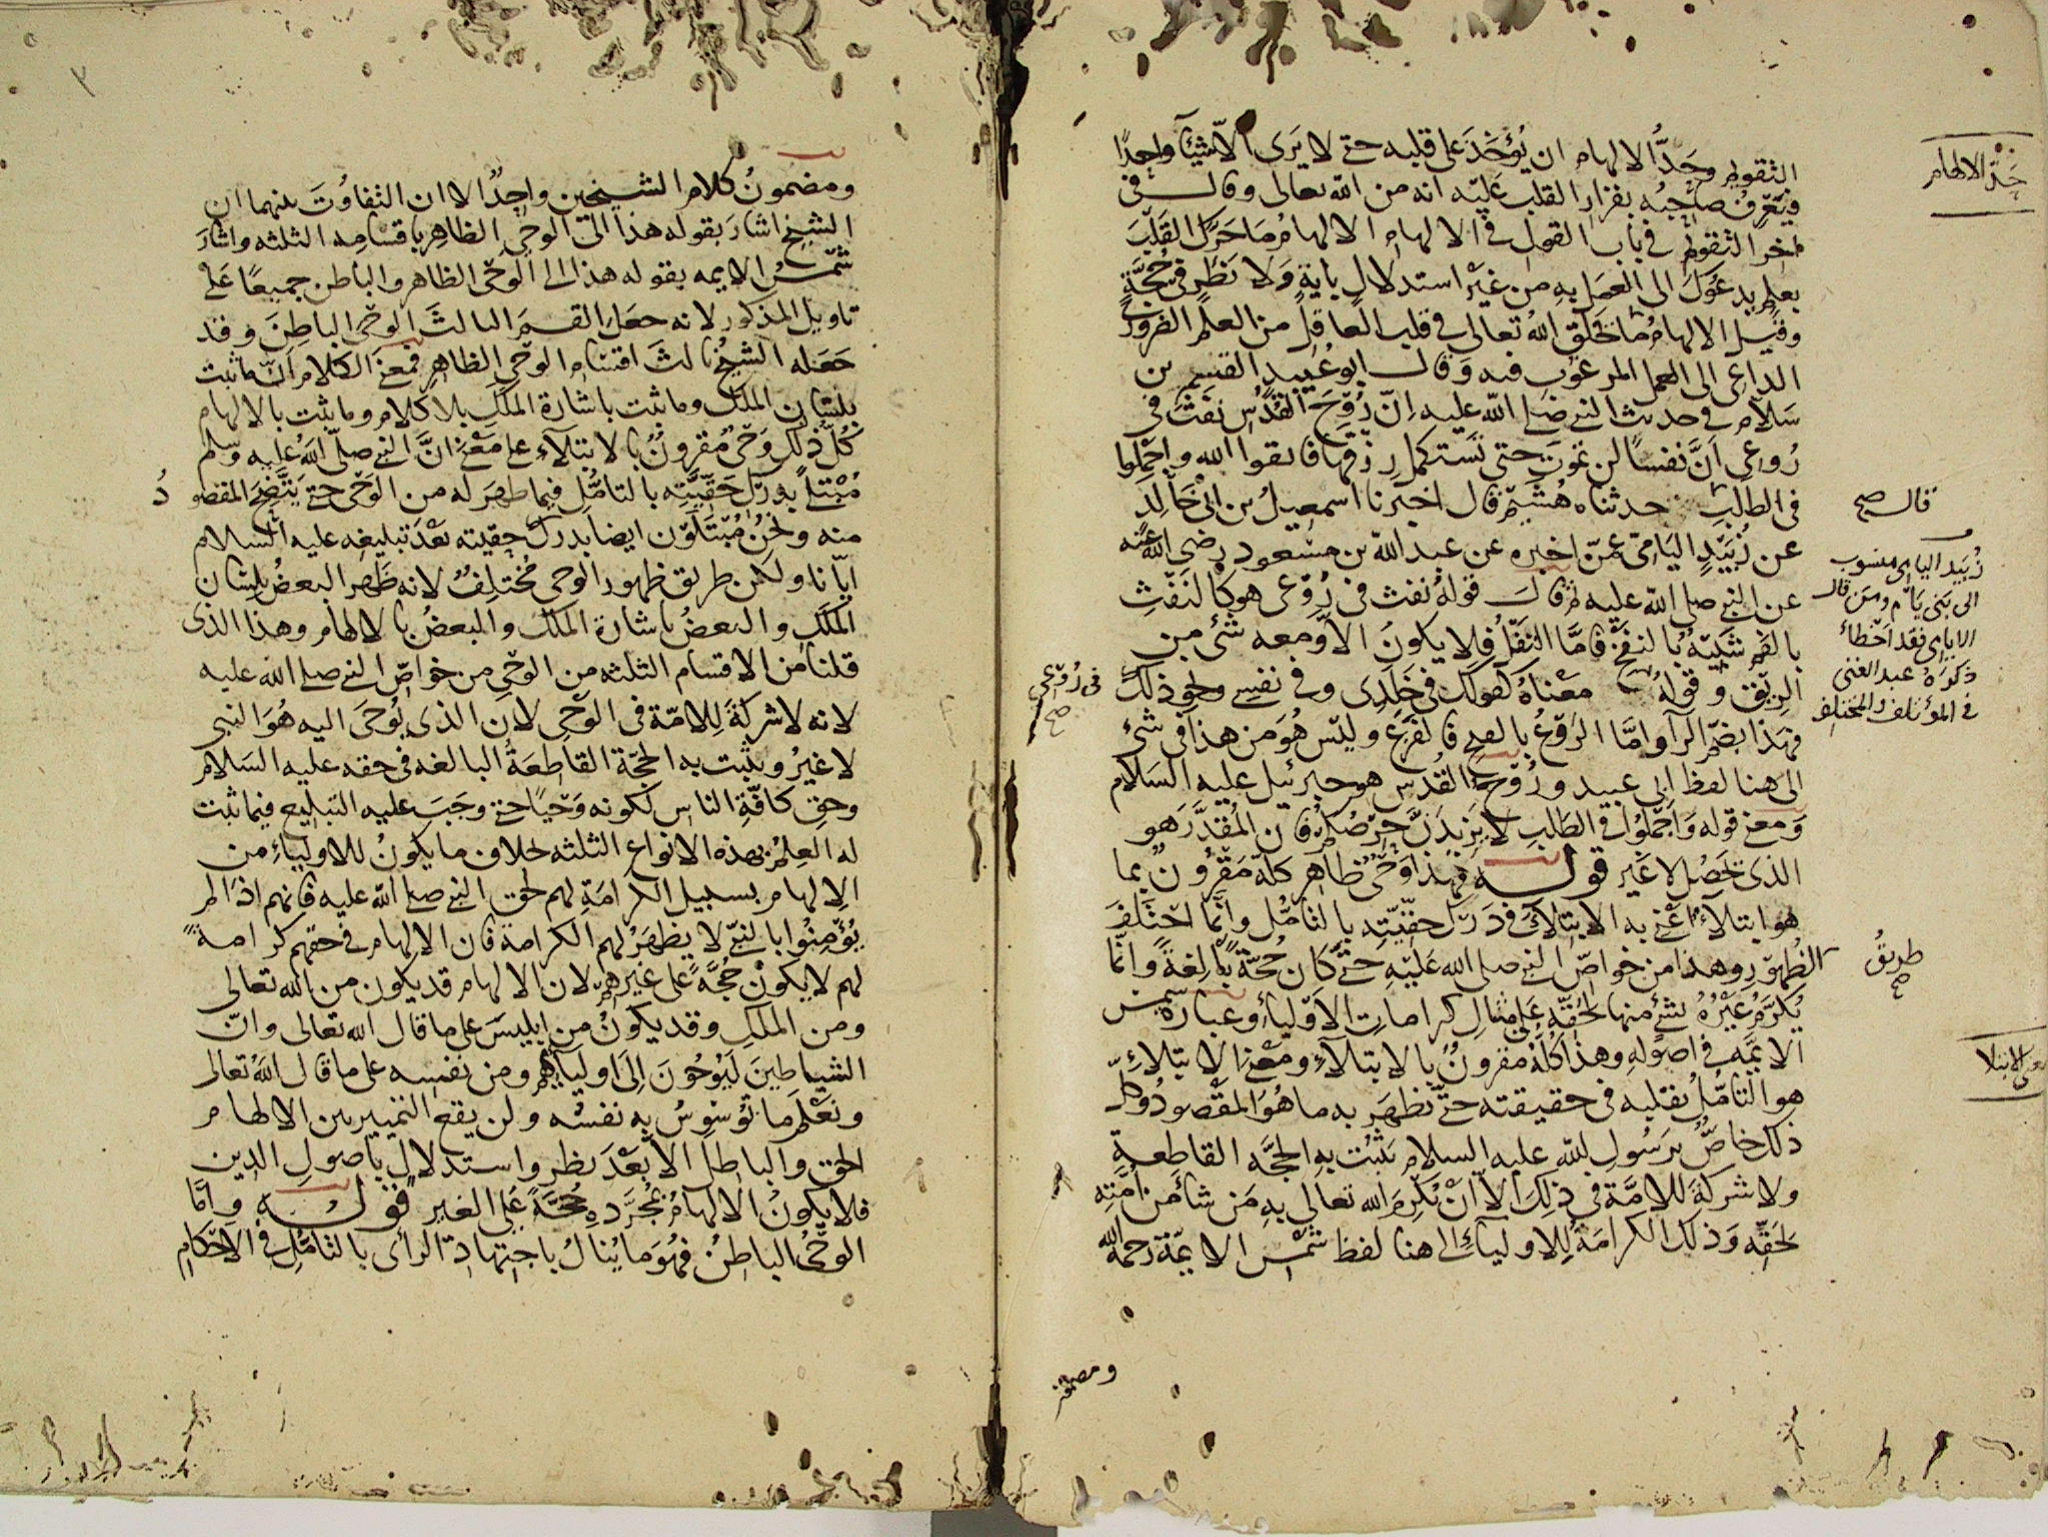 التقويم وحَدُّ الالهام ان يُؤخَذَ على قلبه حتى لا يَرى الّا شيئًا واحدًا
فيَعْرِفُ صاحبُه بقرار القلب عَليْه انه من الله تعالى وقال فى
اخر التقويم فى باب القول فى الالهام الالهامُ مَا حَرَّكَ القَلْبَ
بعلمٍ يدعوكَ الى العمَلِ بهِ من غيْرِ استدلالٍ بايةٍ ولا نظرٍ فى حُجَّةٍ
وقيل الالهامُ ما خَلَق اللهُ تعالى فى قلب العاقل من العلم الضرورىّ
الداعى الى العمل المرغوب فيه وقال ابو عُبيدٍ القسم بن
سَلّام فى حديث النبى صلى الله عليه انّ رُوْحَ القُدُس نفَثَ فى
رُوعى اَنَّ نفسًا لن تموتَ حتى تَستكمل رزقها فاتقوا الله واجْمِلوا
فى الطلبِ حدثناه هُشَيْم قال اخبرنا اسمعيلُ بن ابى خَالِدٍ
عن زُبَيْدٍ اليَامىّ عَمّن اخبره عن عبد الله بن مسْعود رضى الله عنه
عن النبى صلى الله عليه ثم قال قولهُ نفث فى رُوْعى هو كالنَفْثِ
بالفم شَبِيهٌ بالنفخ فامَّا التفْلُ فلا يكونُ الّا ومعه شئ من
الرِيْق وقولهُ معْناهُ كقولك فى خَلَدى وفى نفسى ونحو ذلك
فهَذا بضمّ الرآ وامَّا الرَوْعُ بالفتح فالفَزَعُ وليْس هُوَ من هذا فى شئ
الى هنا لفظ ابى عبيد ورُوْحُ القُدس هو جبرئيل عليه السَلام
ومعنى قوله وَاَجْمِلوُا فى الطَلبِ لا يزيدَنَّ حِرْصُكم فان المُقدَّرَ هو
الذى يَحْصُل لا غير قوله فهَذا وَحْىٌ ظاهر كلّه مَقرُونٌ بما
هو ابتلآءٌ اعْنِى به الابتلآءَ فى دَرَكِ حقّيّتِه بالتأمُّل وانَّما اختَلفَ
الظُهوْرِ وهَذا من خواصّ النبى صلى الله عَليْه حتّى كَان حُجّةً بَالِغةً وانّما
يُكرَّمُ غَيْرُهُ بشئٍ منها لحَقّهِ عَلى مثالِ كرامات الاَوْليآءِ وعبارة شمس
الايمَّه فى اصوله وهذا كُلُّهُ مقرونٌ بالابتلآء ومَعْنَى الابتلاءِ
هو التأمّلُ بقلبه فى حقيقته حتّى يظهَر به ما هُوَ المقْصودُ وكلّ
ذلك خاصٌّ برَسُول الله عليه السلام تثْبُت به الحجَّه القاطعة
ولا شركةَ للامَّة فى ذلِكَ الّا اَنْ يُكرِمَ الله تعَالى بِهِ مَن شاءَ من اُمّتِه
لحَقّه وَذلك الكرامَةُ لِلاوليآءِ الى هنا لفظ شمس الايمّة رحمه الله
حَدّ الالهام
قال صح
زُبَيد اليامى منسوب
الى بَنى يَام ومَن قال
الايامى فقد اخطأ
ذكرهُ عبد الغنى
فى المؤتلف والمختلف
فى رُوْعى صح
طريقُ صح
معنى الابتلا
ومضمون
ومضمونُ كلام الشيخين واحِدٌ الا ان التفاوُتَ بينهما ان
الشيخ اشارَ بقوله هذا الى الوحْى الظاهِر باقسامه الثلثه واشار
شمْس الايمه بقوله هذا الى الوَحْى الظاهر والباطن جميعًا عَلَى
تاويل المذكور لانه جعَلَ القسمَ الثالثَ الوحْى الباطِنَ وقد
جَعَله الشيخُ ثالثَ اقسَام الوحْى الظاهِر فمعنى الكلام اَنّ ما ثبت
بلسَان المَلَك وما ثبت باشارة المَلَكِ بلا كلام وما ثبت بالالهام
كُلُّ ذلك وَحْىٌ مقرونٌ بالابتلآء على معْنى انَّ النبى صلّى اللهُ عليه وسلم
مُبْتلًى بدَرَكِ حَقيّتِه بالتأمُّل فيما ظهَرَ له من الوَحْى حتى يَتّضِحَ المقصودُ
منه ونحْنُ مُبْتَلَوْن ايضا بدرك حِقيّته بعْدَ تبليغه عليه السلام
ايّانا ولكن طريق ظهور الوحى مُختلِفٌ لانه ظَهر البعضُ بلسَان
المَلكِ والبعضُ باشارة المَلَك والبعضُ بالالهام وهذا الذى
قلنا من الاقسام الثلثه من الوحْى من خواصّ النبى صلى الله عليه
لانه لا شركةَ لِلامّة فى الوَحْى لان الذى يُوحَى اليه هُوَ النبى
لا غيرُ ويثبت به الحجّة القاطِعَةُ البالغه فى حقه عليه السَلام
وحق كافّةِ الناس لكونه وَحْيًا حتى وجَبَ عليه التبليع فيما ثبت
له العِلمُ بهذه الانواع الثلثه خلاف ما يكونُ للاوليآءِ من
الِالهام بسبيل الكرامَةِ لهم لحق النبى صلى الله عليه فانهم اذا لم
يُؤمِنُوا بالنبىّ لا يظهَرُ لهم الكرامة فان الالهام فى حقهم كرامةً
لهم لا يكونُ حُجَّةً على غيرهم لان الالهام قد يكون من الله تعالى
ومن المَلَكِ وقد يكونُ من ابليسَ على ما قال الله تعالى وانّ
الشياطينَ لَيُوْحُونَ اِلَى اوليآئِهم ومن نفسِه على ما قال اللهُ تعالى
ونعْلَم ما تُوَسْوِسُ به نفسُه ولن يقع التمييز بين الالهام
الحق والباطل الا بعْدَ نظر واستدلال باصول الدين
فلا يكونُ الالهامُ بمُجرَّده حُجَّةً عَلى الغير قوله وامَّا
الوحْىُ الباطنُ فهُوَ ما يُنالُ باجتهاد الرأى بالتأمُّلِ فى الاحْكام